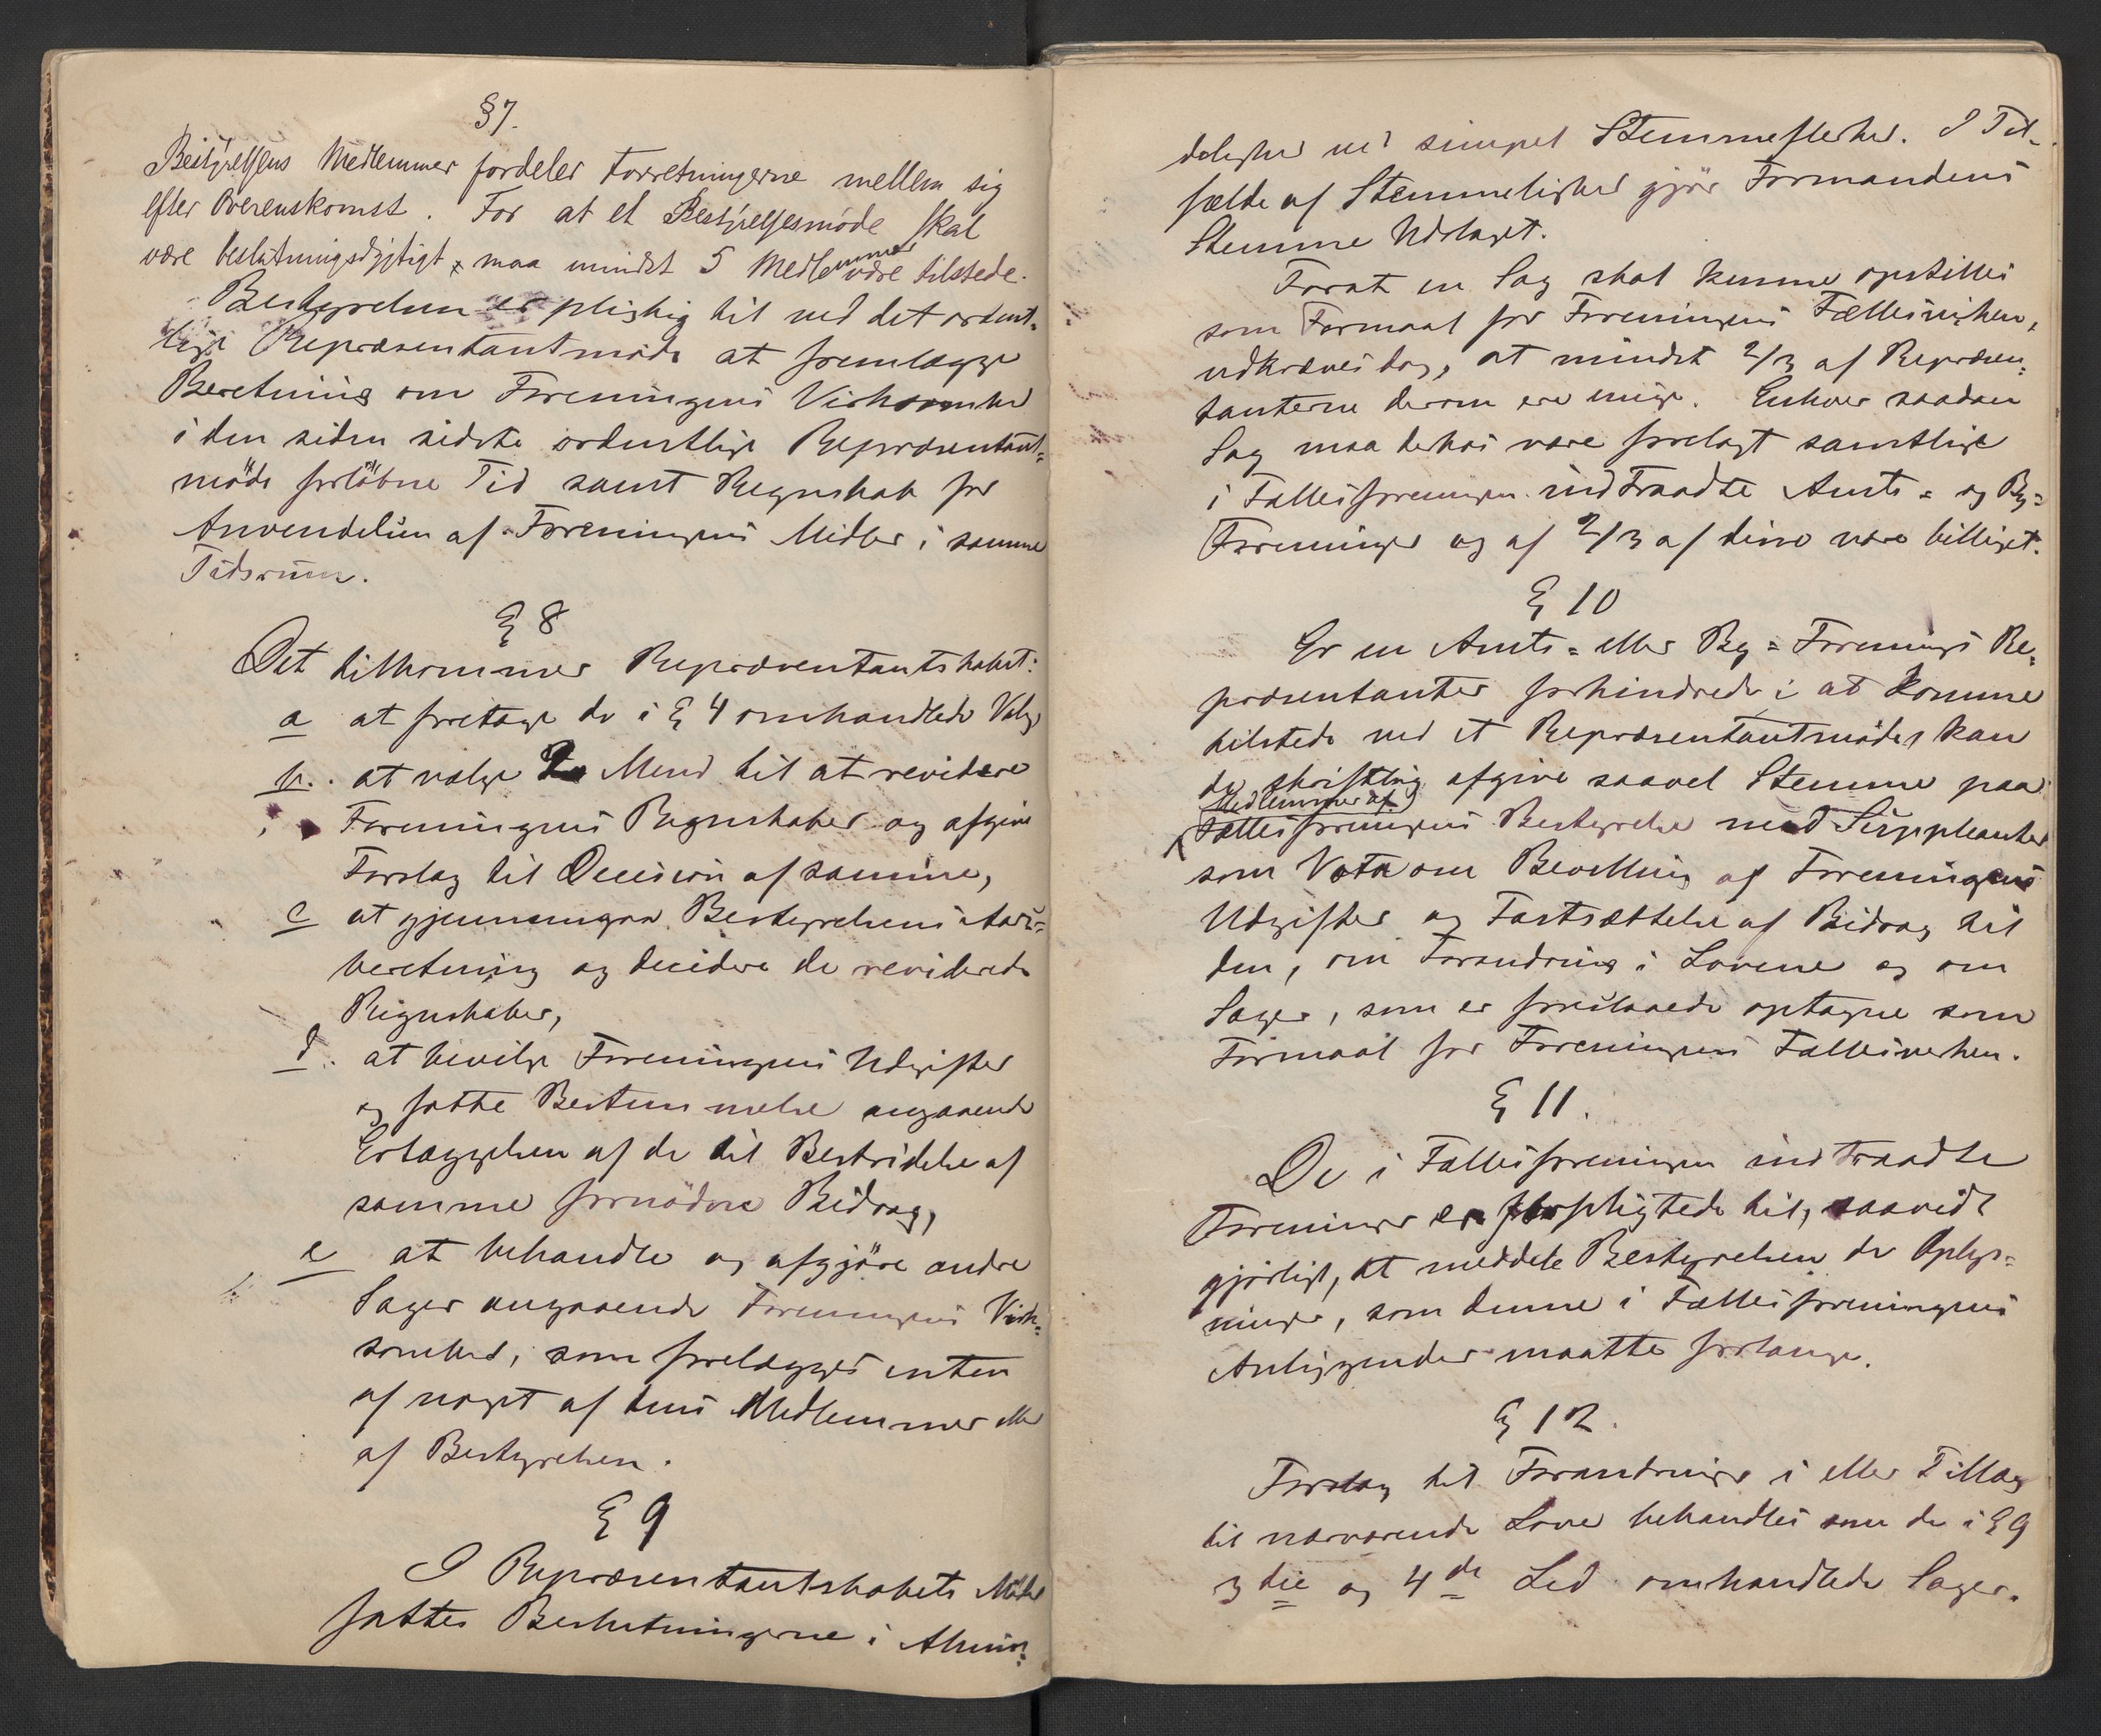 §7.
Bestyrelsens Medlemmer fordeler Forretningerne mellem sig
efter Overenskomst. For at et Bestyrelsesmöde skal
være beslutningsdygtigt, maa mindst 5 Medlemmer være tilstede.
Bestyrelsen er pligtig til ved det ordent-
lige Repræsentantmöde at fremlægge
Beretning om Foreningens Virksomhed
i den siden sidste ordentlige Repræsentant=
möde forløbne Tid samt Regnskab for
Anvendelsen af Foreningens Midler i samme
Tidsrum.
§ 8
Det tilkommer Repræsentantskabet:
a at foretage de i § 4 omhandlede Valg
b. at vælge 2 Mænd til at revidere
Foreningens Regnskaber og afgive
Forslag til Decision af samme,
c at gjennemgaa Bestyrelsens Aars=
beretning og decidere de reviderede
Regnskaber,
d. at bevilge Foreningens Udgifter
og fatte Bestemmelse angaaende
Erlæggelsen af de til Bestridelse af
samme fornödne Bidrag,
e at behandle og afgjöre andre
Sager angaaende Foreningens Virk=
somhed, som forelægges enten
af noget af dens Medlemmer eller
af Bestyrelsen.
§ 9
I Repræsentantskabets Möder
fattes Beslutningerne i Almin=
delighed ved simpel Stemmeflerhed. I Til-
fælde af Stemmelighed gjör Formandens
Stemme Udslaget.
Forat en Sag skal kunne opstilles
som Formaal for Foreningens Fællesvirken,
udkræves dog, at mindst 2/3 af Repræsen=
tanterne derom ere enige. Enhver saadan
Sag maa derhos være forelagt samtlige
i Fællesforeningen indtraadte Amts= og By=
Foreninger og af 2/3 af disse være billiget.
§ 10
Er en Amts= eller By=Forenings Re=
præsentanter forhindrede i at komme
tilstede ved et Repræsentantmöde, kan
de skriftlig afgive saavel Stemme paa
Medlemmer af
Fællesforeningens Bestyrelse med Suppleanter
som Vota om Bevilling af Foreningens
Udgifter og Fastsættelse af Bidrag til
den, om Forandring i Lovene og om
Sager, som er foreslaaede optagne som
Formaal for Foreningens Fællesvirken.
§ 11.
De i Fællesforeningen indtraadte
Foreninger er forpligtede til, saavidt
gjörligt, at meddele Bestyrelsen de Oplys=
ninger, som denne i Fællesforeningens
Anliggender maatte forlange.
§ 12.
Forslag til Forandringer i eller Tillæg
til nærværende Love behandles som de i § 9
3die og 4de Led omhandlede Sager.